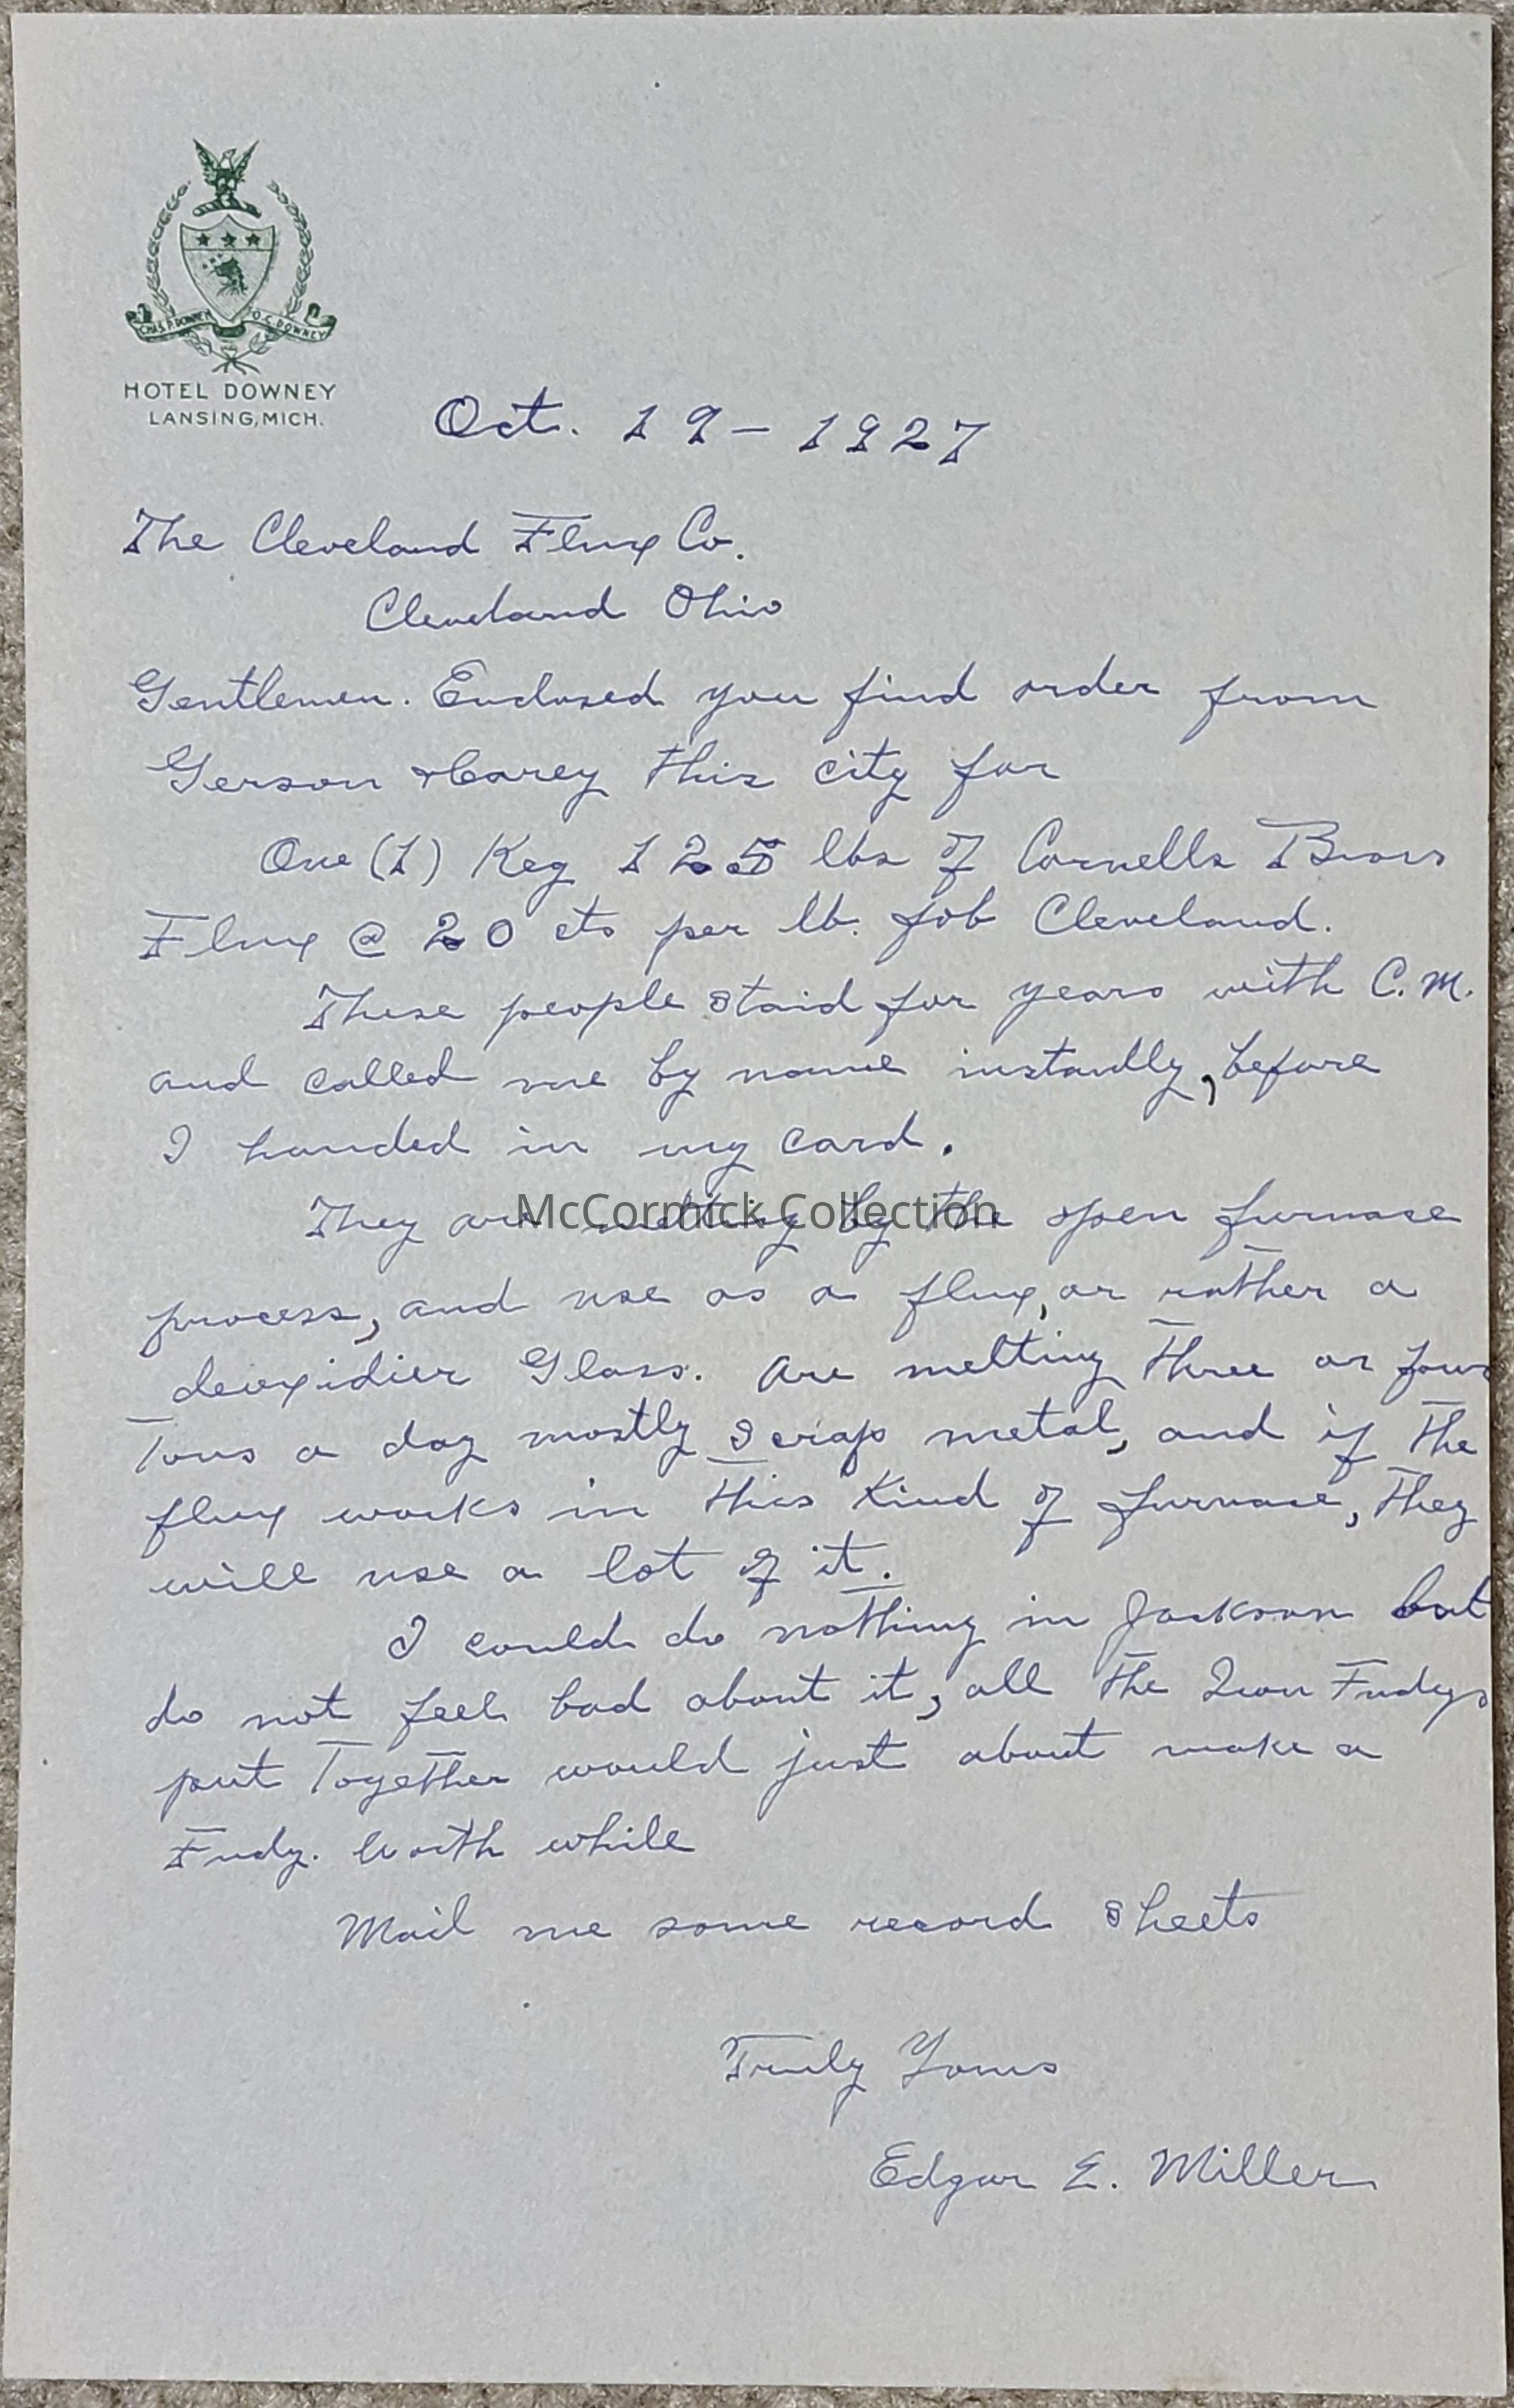 CHAS. P. DOWNEY O. C. DOWNEY
HOTEL DOWNEY
LANSING, MICH.
Oct. 19 – 1927
The Cleveland Flux Co.
Cleveland Ohio
Gentlemen. Enclosed you find order from
Gerson & Carey this city for
One (1) Keg 125 lbs of Cornells Brass
Flux @ 20 cts per lb. fob Cleveland.
These people staid for years with C. M.
and called me by name instantly, before
I handed in my card.
They are melting by the open furnace
process, and use as a flux, or rather a
deoxidier Glass. Are melting three or four
Tons a day mostly Scrap metal, and if the
flux works in this Kind of furnace, they
will use a lot of it.
I could do nothing in Jackson but
do not feel bad about it, all the Iron Fndys
put Together would just about make a
Fndy. Worth while
Mail me some record Sheets
Truly Yours
Edgar E. Miller
McCormick Collection